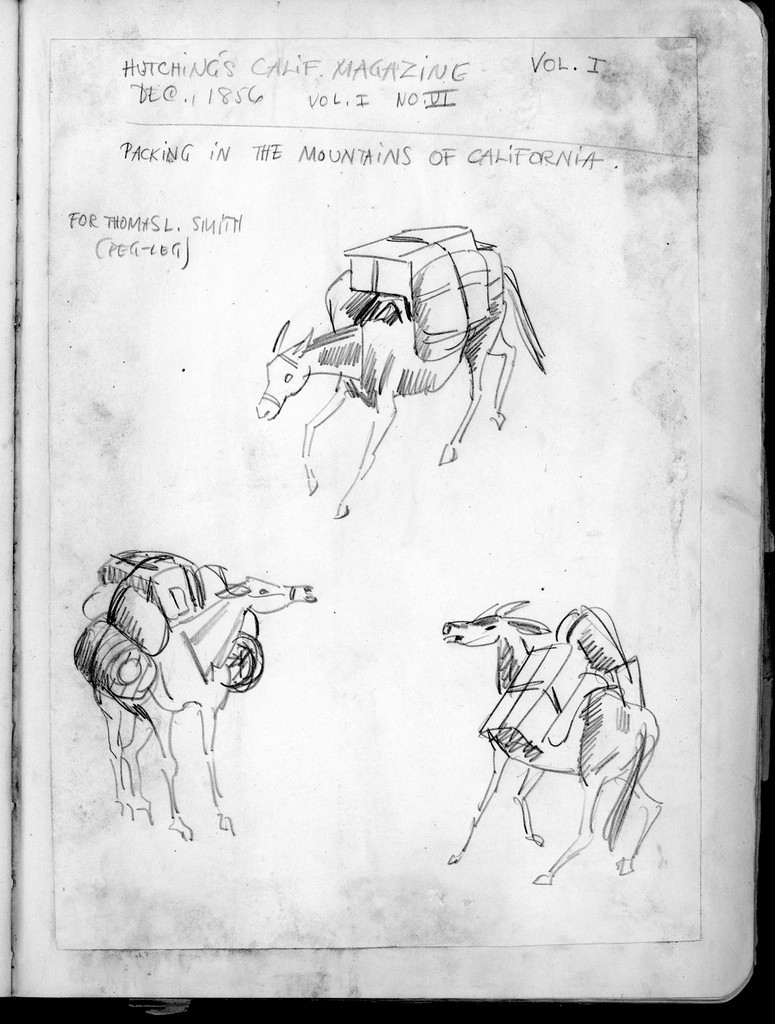 HUTCHING'S CALIF. MAGAZINE VOL. I
DEC., 1856 VOL. I NO. VI
PACKING IN THE MOUNTAINS OF CALIFORNIA.
FOR THOMAS L. SMITH
(PEG-LEG)